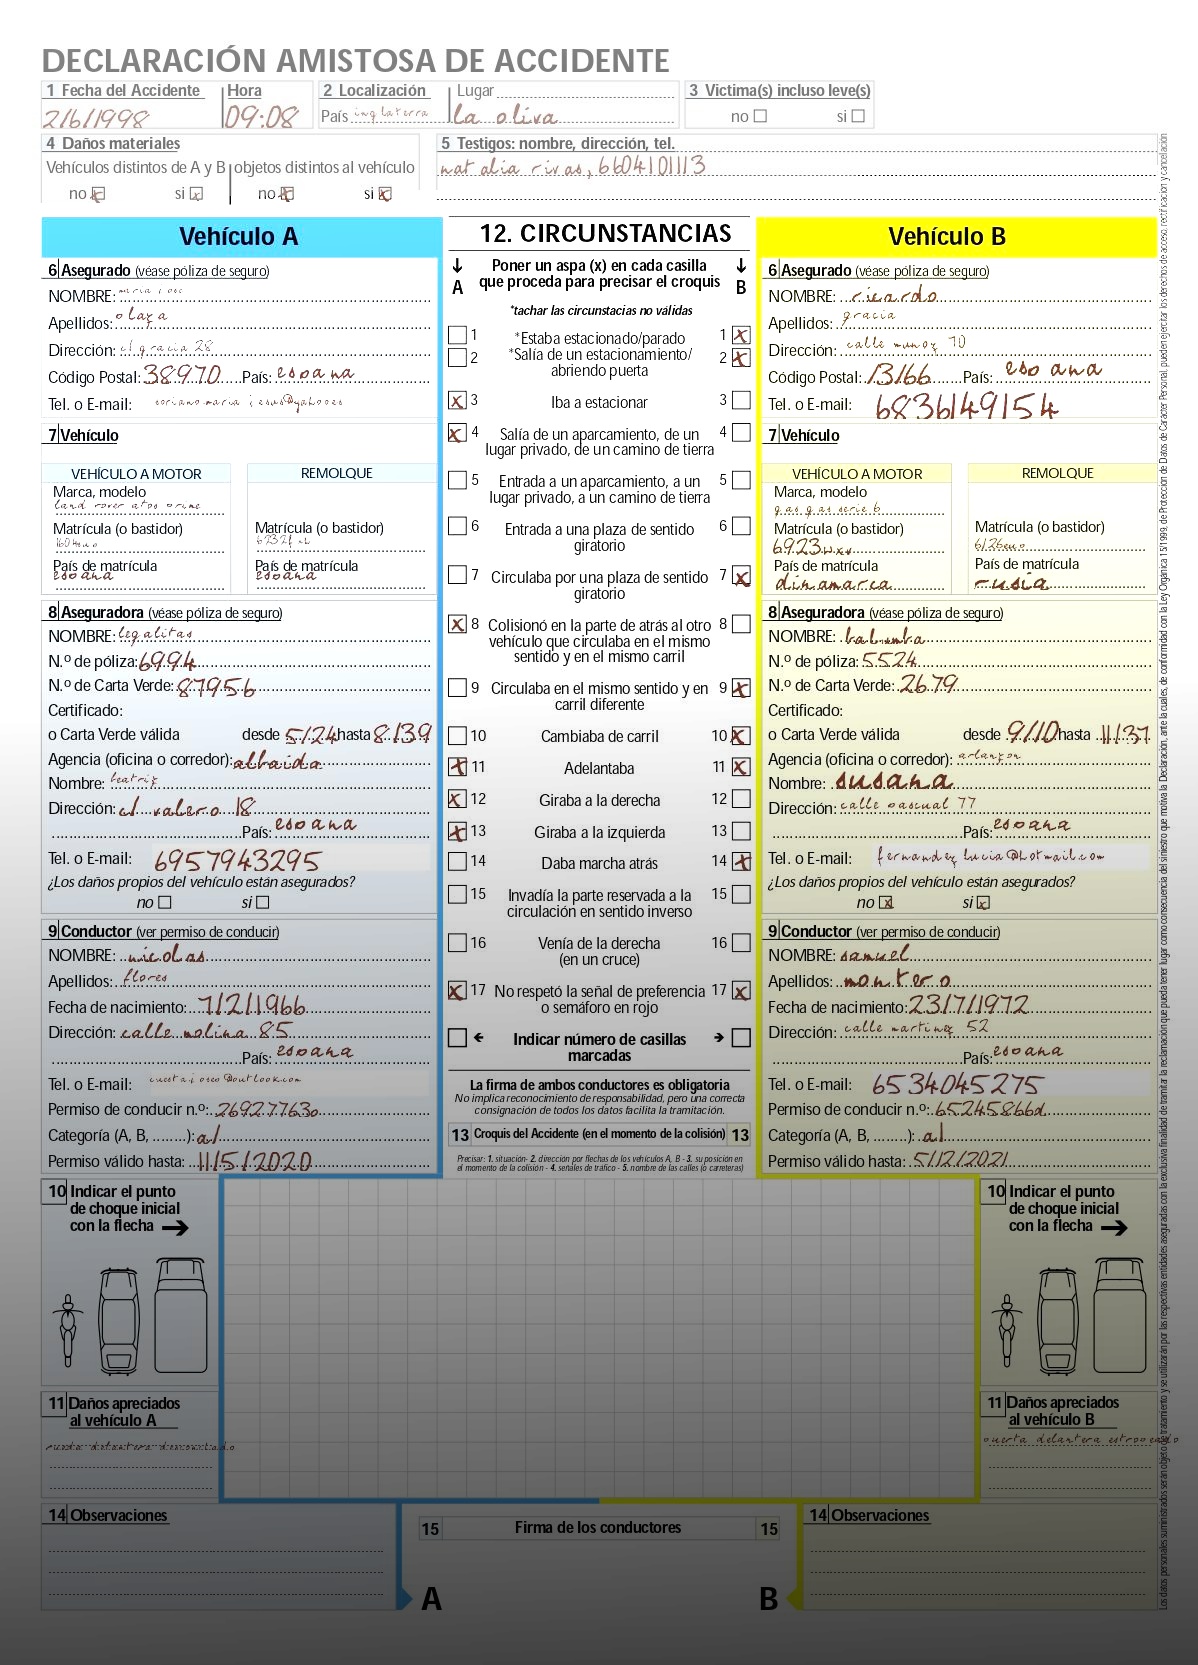 DECLARACIÓN AMISTOSA DE ACCIDENTE
1 Fecha del Accidente Hora 2 Localización Lugar 3 Victima(s) incluso leve(s)
2/6/1998 09:08 País inglaterra la oliva no si
4 Daños materiales 5 Testigos: nombre, dirección, tel.
Vehículos distintos de A y B objetos distintos al vehículo natalia rivas, 6604101113
no x si x no x si x
Vehículo A
6 Asegurado (véase póliza de seguro)
NOMBRE: maria jose
Apellidos: olaya
Dirección: cl gracia 28
Código Postal: 38970 País: espana
Tel. o E-mail:
7 Vehículo
VEHÍCULO A MOTOR REMOLQUE
Marca, modelo
land rover atos prime
Matrícula (o bastidor) Matrícula (o bastidor)
País de matrícula País de matrícula
espana espana
8 Aseguradora (véase póliza de seguro)
NOMBRE: legalitas
N.º de póliza: 6994
N.º de Carta Verde: 87956
Certificado:
o Carta Verde válida desde 5/24 hasta 8/39
Agencia (oficina o corredor): albaida
Nombre: beatriz
Dirección: cl valero 18
País: espana
Tel. o E-mail: 6957943295
¿Los daños propios del vehículo están asegurados?
no si
9 Conductor (ver permiso de conducir)
NOMBRE: nicolas
Apellidos: flores
Fecha de nacimiento: 7/2/1966
Dirección: calle molina 85
País: espana
Tel. o E-mail: cuestajoseo@outlook.com
Permiso de conducir n.º: 26927763o
Categoría (A, B, ........): a1
Permiso válido hasta: 11/5/2020
12. CIRCUNSTANCIAS
A Poner un aspa (x) en cada casilla que proceda para precisar el croquis B
*tachar las circunstacias no válidas
1 *Estaba estacionado/parado 1 x
2 *Salía de un estacionamiento/ 2 x
abriendo puerta
x 3 Iba a estacionar 3
x 4 Salía de un aparcamiento, de un 4
lugar privado, de un camino de tierra
5 Entrada a un aparcamiento, a un 5
lugar privado, a un camino de tierra
6 Entrada a una plaza de sentido 6
giratorio
7 Circulaba por una plaza de sentido 7 x
giratorio
x 8 Colisionó en la parte de atrás al otro 8
vehículo que circulaba en el mismo
sentido y en el mismo carril
9 Circulaba en el mismo sentido y en 9 x
carril diferente
10 Cambiaba de carril 10 x
x 11 Adelantaba 11 x
x 12 Giraba a la derecha 12
x 13 Giraba a la izquierda 13
14 Daba marcha atrás 14 x
15 Invadía la parte reservada a la 15
circulación en sentido inverso
16 Venía de la derecha 16
(en un cruce)
x 17 No respetó la señal de preferencia 17 x
o semáforo en rojo
Indicar número de casillas
marcadas
La firma de ambos conductores es obligatoria
No implica reconocimiento de responsabilidad, pero una correcta
consignación de todos los datos facilita la tramitación.
13 Croquis del Accidente (en el momento de la colisión) 13
Precisar: 1. situación- 2. dirección por flechas de los vehículos A, B - 3. su posición en
el momento de la colisión - 4. señales de tráfico - 5. nombre de las calles (o carreteras)
Vehículo B
6 Asegurado (véase póliza de seguro)
NOMBRE: ricardo
Apellidos: gracia
Dirección: calle munoz 10
Código Postal: 13166 País: espana
Tel. o E-mail: 6836149154
7 Vehículo
VEHÍCULO A MOTOR REMOLQUE
Marca, modelo
gas gas serie 6
Matrícula (o bastidor) Matrícula (o bastidor)
6923wxv 6126euo
País de matrícula País de matrícula
dinamarca rusia
8 Aseguradora (véase póliza de seguro)
NOMBRE: balumba
N.º de póliza: 5524
N.º de Carta Verde: 2679
Certificado:
o Carta Verde válida desde 9/10 hasta 11/31
Agencia (oficina o corredor): arlanzon
Nombre: susana
Dirección: calle pascual 77
País: espana
Tel. o E-mail: fernandez lucia@hotmail.com
¿Los daños propios del vehículo están asegurados?
no x si x
9 Conductor (ver permiso de conducir)
NOMBRE: samuel
Apellidos: montero
Fecha de nacimiento: 23/7/1972
Dirección: calle martinez 52
País: espana
Tel. o E-mail: 6534045275
Permiso de conducir n.º: 65245866d
Categoría (A, B, ........): a1
Permiso válido hasta: 5/12/2021
10 Indicar el punto
de choque inicial
con la flecha
11 Daños apreciados
al vehículo A
rueda delantera desmontada
14 Observaciones
15 Firma de los conductores 15
A B
10 Indicar el punto
de choque inicial
con la flecha
11 Daños apreciados
al vehículo B
puerta delantera estropeado
14 Observaciones
Los datos personales suministrados serán objeto de tratamiento y se utilizarán por las respectivas entidades aseguradas con la exclusiva finalidad de tramitar la reclamación que pueda tener lugar como consecuencia del siniestro que motiva la Declaración, ante la cuales, de conformidad con la Ley Orgánica 15/1999, de Protección de Datos de Carácter Personal, pueden ejercitar los derechos de acceso, rectificación y cancelación